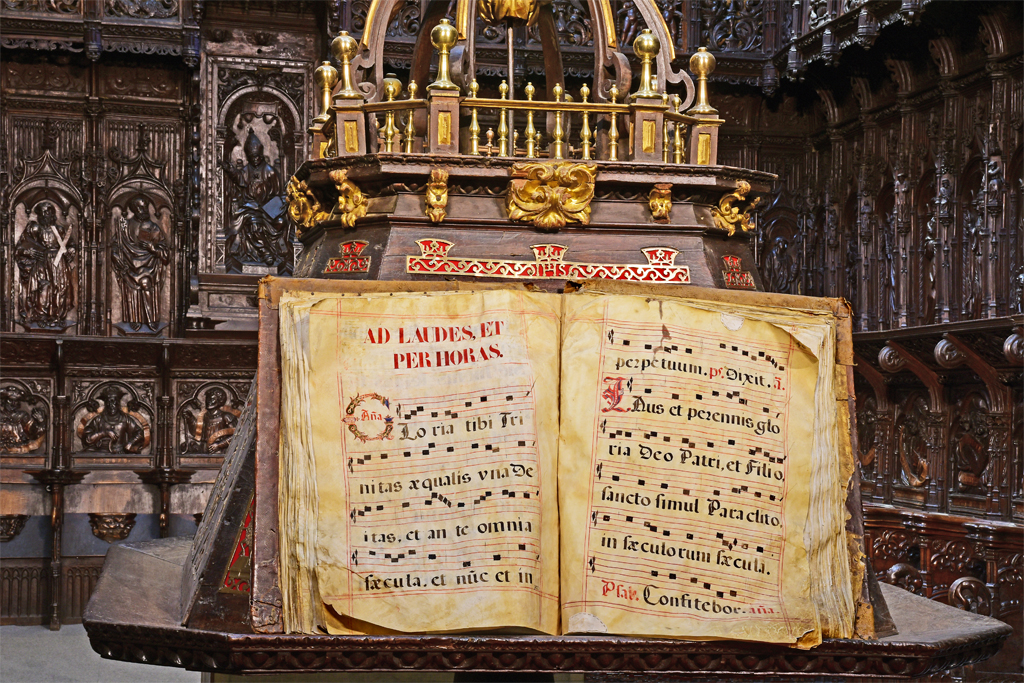 IHS
AD LAUDES, ET
PER HORAS.
Aña
Lo ria tibi Tri
nitas æqualis vna De
itas, et an te omnia
sæcula, et nũc et in
perpetuum. ps. Dixit. ã.
Laus et perennis glo
ria Deo Patri, et Filio,
sancto simul Paraclito,
in sæculorum sæcula.
Psal. Confitebor. aña.